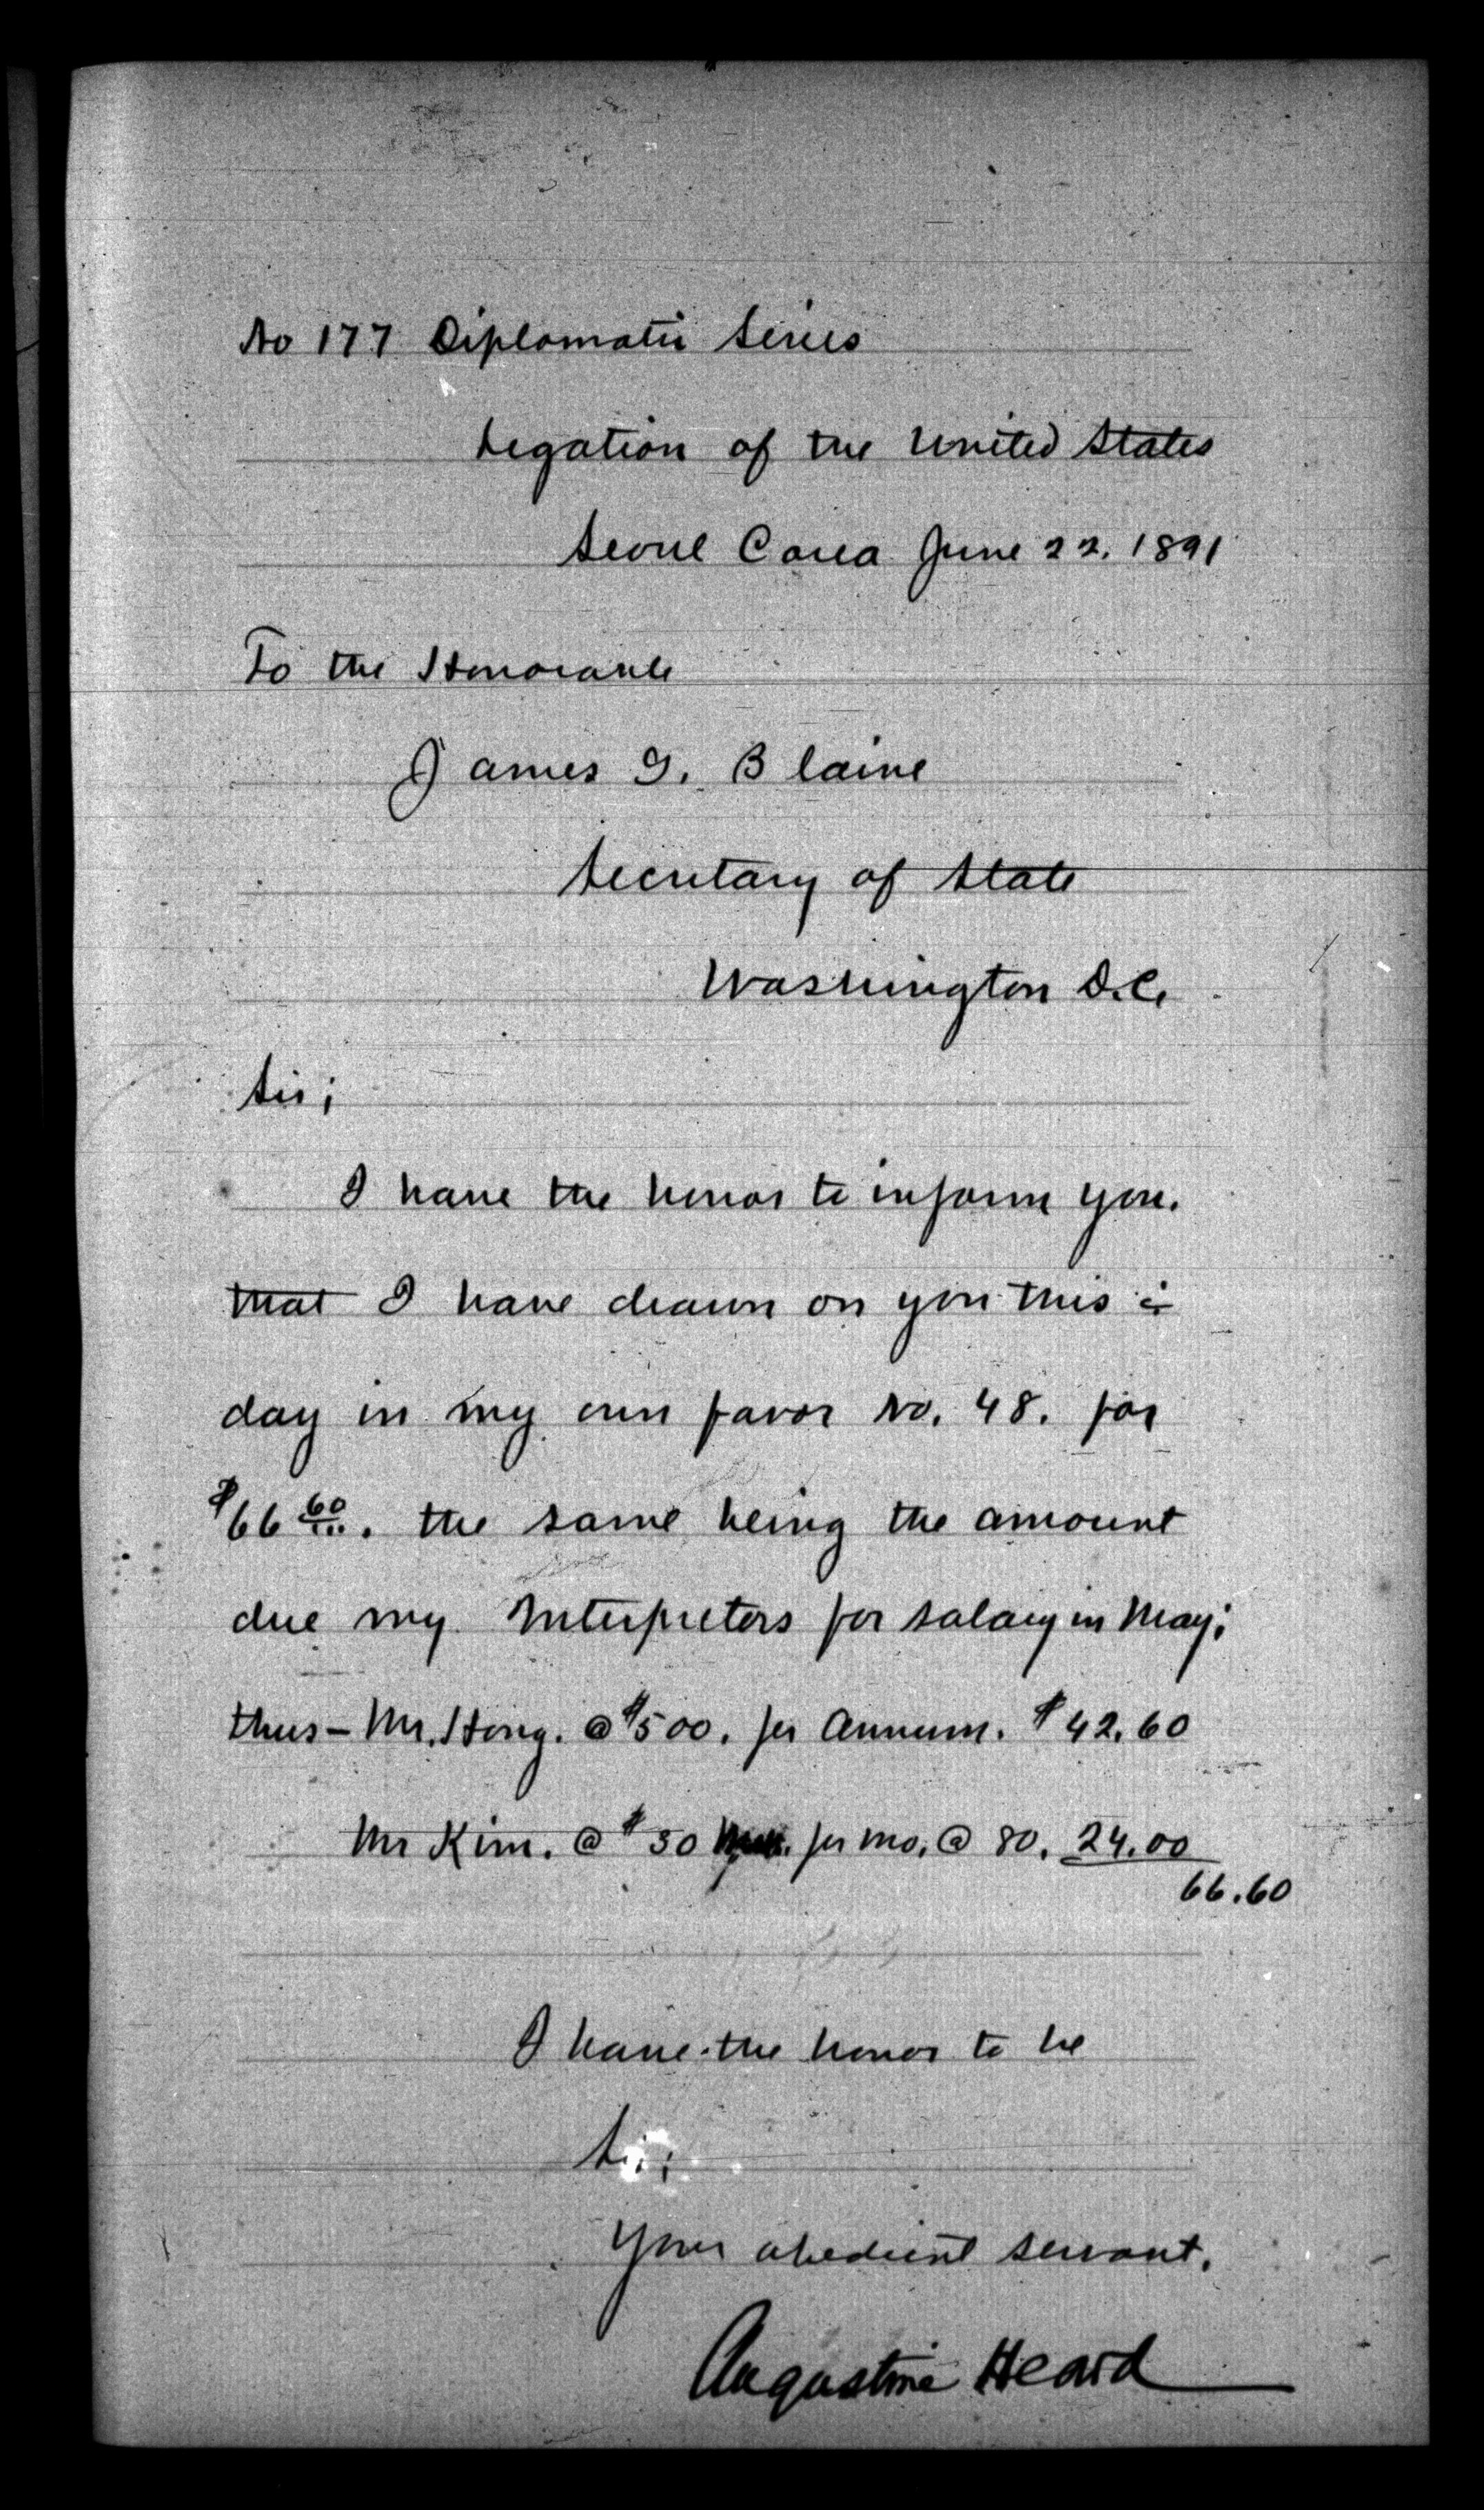 No 177 Diplomatic Series
Legation of the United States
Seoul Corea June 22. 1891
To the Honorable
James G. Blaine
Secretary of State
Washington D.C.
Sir;
I have the honor to inform you.
that I have drawn on you this
day in my own favor No. 48. for
$66 60/100. the same being the amount
due my Interpreters for salary in May;
thus - Mr. Hong. @ $500. per Annum. $42.60
Mr Kim. @ $30 per mo. @ 80. 24.00
66.60
I have the honor to be
Sir;
Your obedient servant.
Augustine Heard